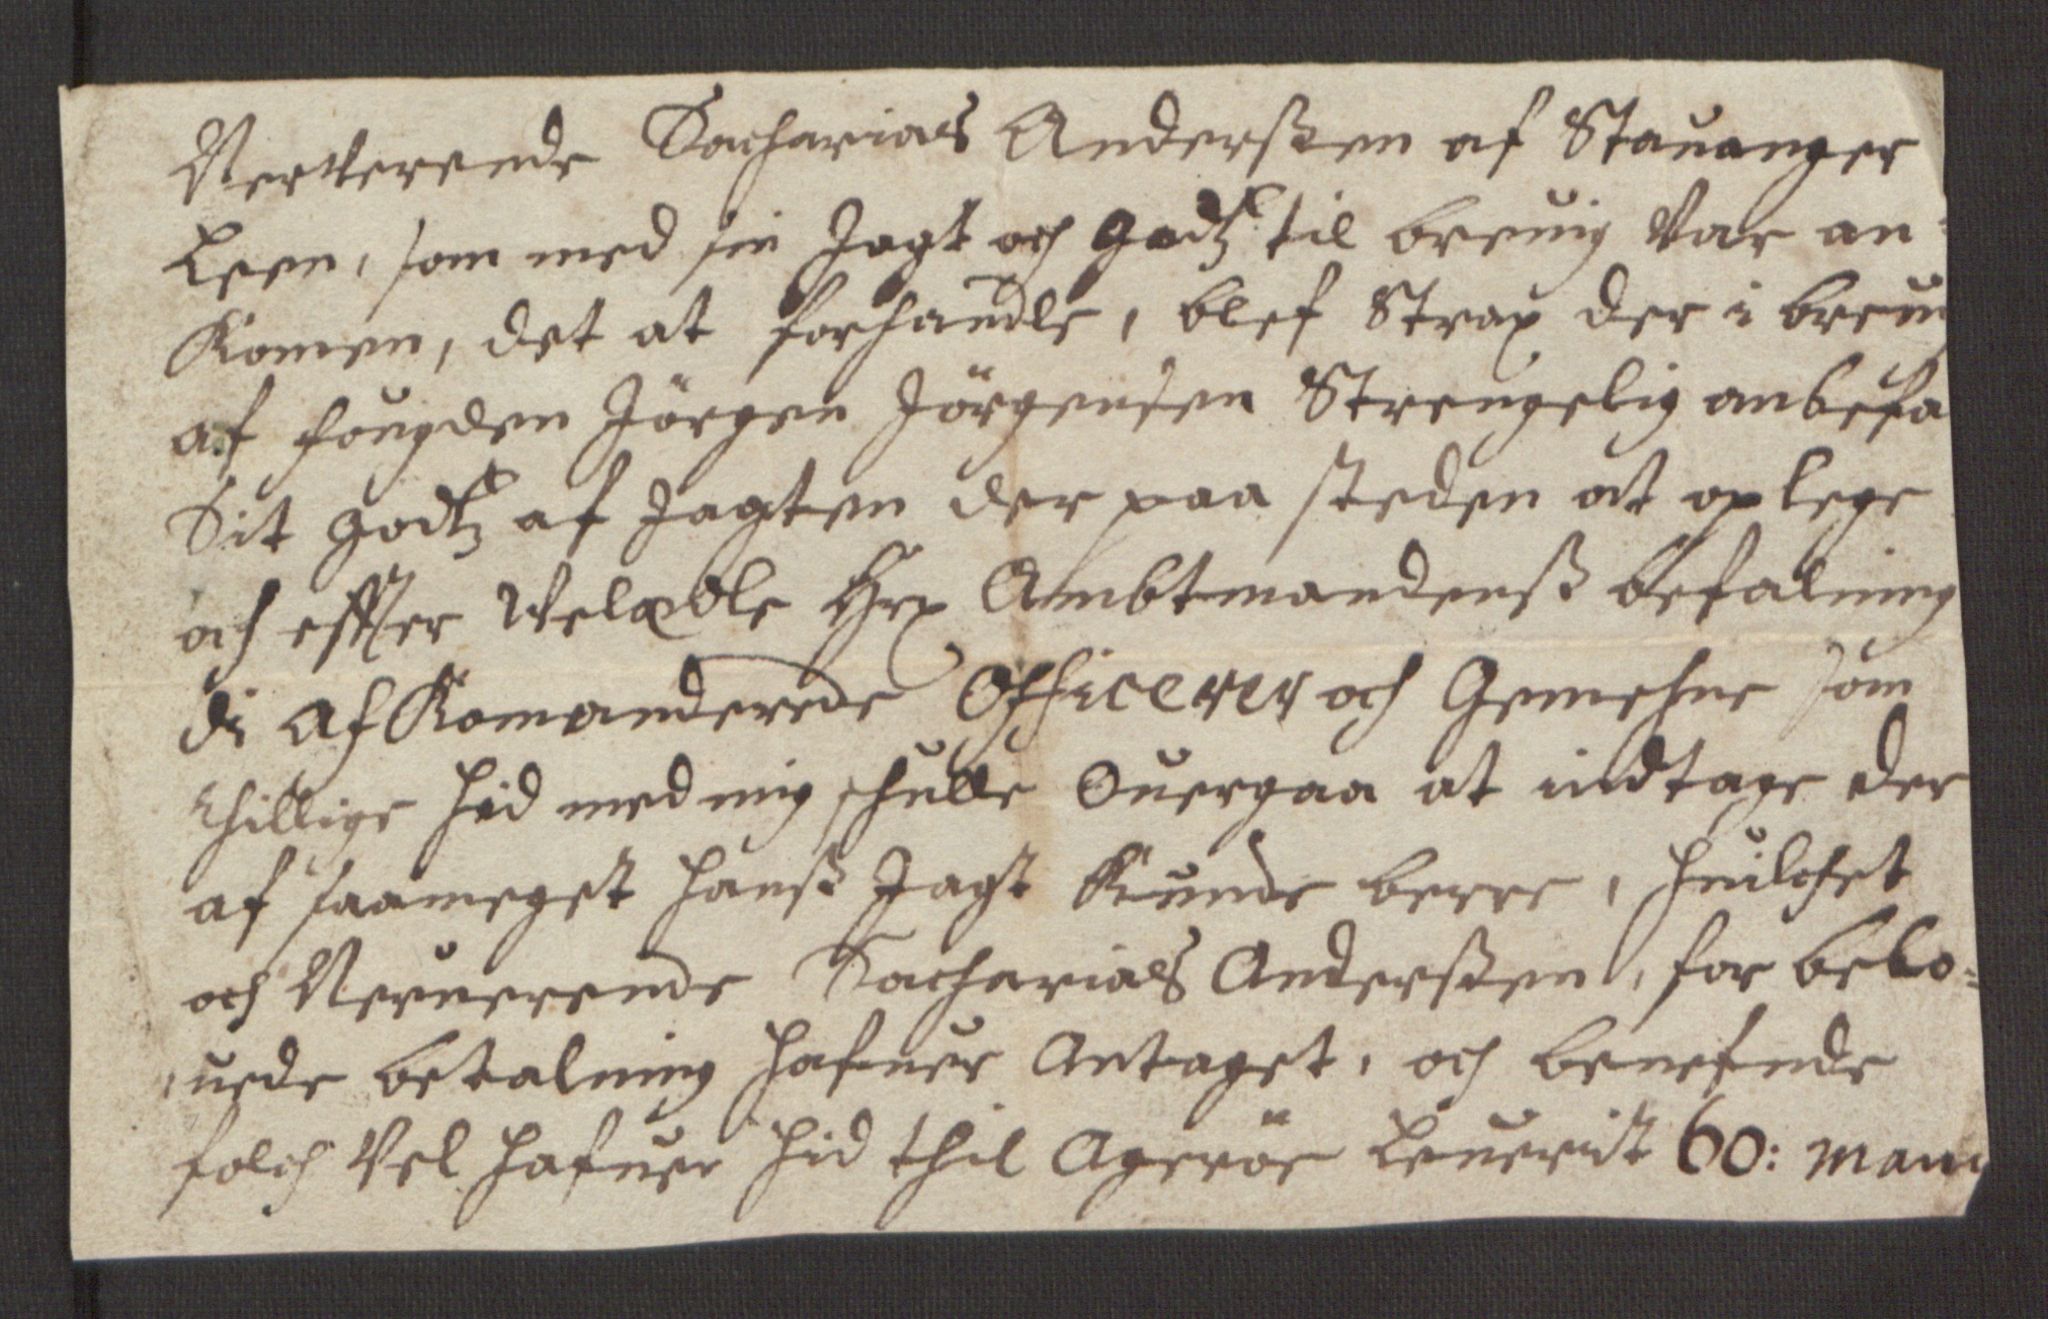 Nerverende Zacharias Anderßen af Stauanger
Leen, som med sin Jagt och godtz til breuig Var an-
Komen, det at forhandle, blef Strax der i breui
af fougden Jörgen Jörgensen Strengelig anbefa
Sit godtz af Jagten der paa steden at oplege
och effter Velædle Hrr Ambtmandenß befalning
di af Komanderede Officerer och Gemehne som
thillige hid med mig schulle Ouergaa at indtage der
af saameget hanß Jagt Kunde berre, huilchet
och Neruerende Zacharias Anderßen, for belo-
uede betalning hafuer Antaget, och benefnde
folch Vel hafuer hid thil Ageröe Leuerit 60: Mand